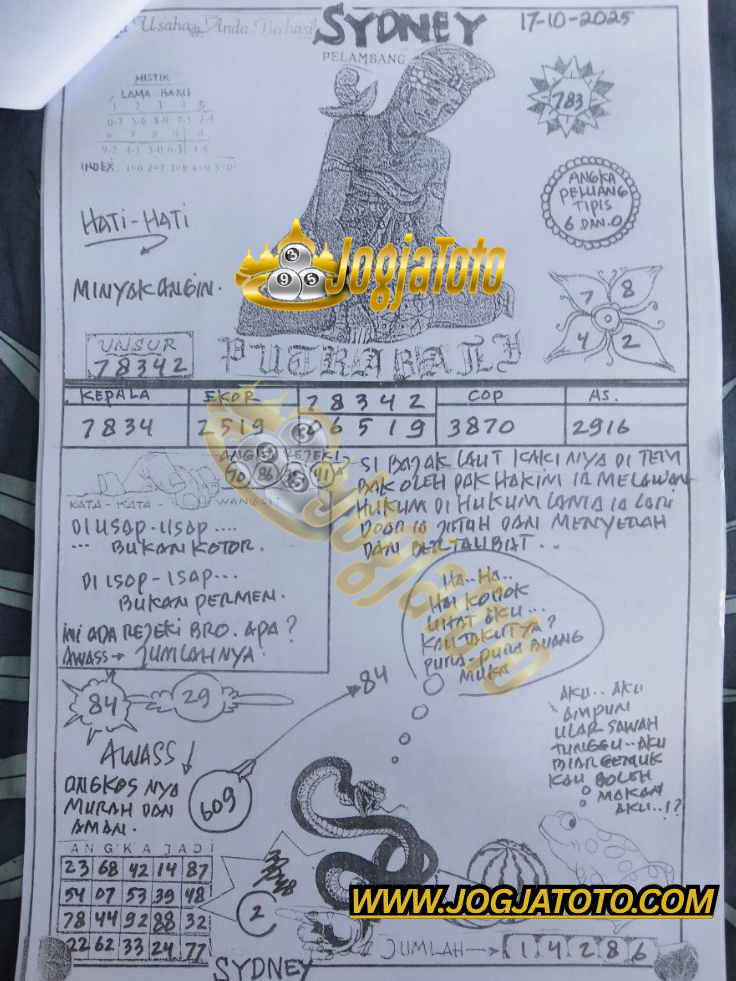 Usaha Anda Berhasil
SYDNEY
17-10-2025
PELAMBANG
MISTIK
LAMA - BARU
1 2 3 4 5
0-7 5-6 8-9 2-3 2-4
6 7 8 9 0
9-2 4-1 3-0 6-3 1-8
INDEX 1=6 2=7 3=8 4=9 5=0
783
ANGKA
PELUANG
TIPIS
6 DAN.0
HATI-HATI
MINYAK ANGIN.
JogjaToto
7 8
4 2
UNSUR
78342
PUTRA BALI
KEPALA EKOR 78342 COP AS.
7834 2519 06519 3870 2916
ANGKA REJEKI
86 41
SI BAJAK LAUT KAKINYA DI TEM
BAK OLEH PAK HAKIM IA MELAWAN
HUKUM DI HUKUM LAMA IA LARI
DOOR IA JATUH DAN MENYERAH
DAN BERTAUBAT...
KATA - KATA - WANGSIT
DI USAP-USAP....
... BUKAN KOTOR.
DI ISAP-ISAP...
BUKAN PERMEN.
INI ADA REJEKI BRO. APA?
AWASS → JUMLAHNYA.
JogjaToto
HA..HA..
HAI KODOK
LIHAT AKU...
KAU TAKUT YA?
PURA-PURA BUANG
MUKA
84
29
84
AWASS
ANGKOS NYA
MURAH DAN
AMAN.
609
AKU.. AKU
AMPUN
ULAR SAWAH
TUNGGU..AKU
BIAR GEMUK
KAU BOLEH
MAKAN
AKU..!?
ANGKA JADI
23 68 42 14 87
54 07 53 39 48
78 44 92 88 32
22 62 33 24 77
2
WWW.JOGJATOTO.COM
JUMLAH → 1 4 2 8 6
SYDNEY